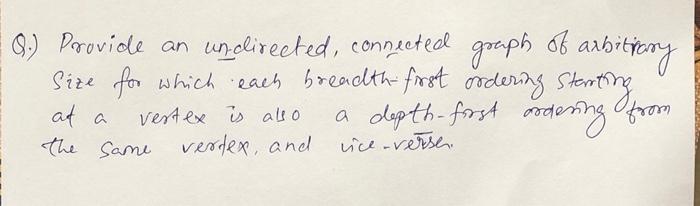 Q.) Provide an undirected, connected graph of arbitrary
Size for which each breadth-first ordering Starting
at a vertex is also a depth-first ordering from
the same vertex, and vice-versa.